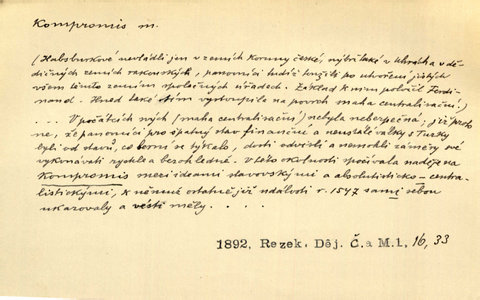 Kompromis m.
(Habsburkové nevládli jen v zemích koruny české, nýbrž také v Uhrách a v dě-
dičných zemích rakouských, panovníci tudíž toužili po utvoření jistých
všem těmto zemím společných úřadech. Základ k nim položil Ferdi-
nand. Hned také tím vystoupila na povrch maha centralisační.)
... V počátcích svých (maha centralisační) nebyla nebezpečná, již proto
ne, že panovníci pro špatný stav finanční a neustálé války s Turky
byli od stavů, co berní se týkalo, dosti odvislí a nemohli záměry své
vykonávati rychle a bezohledně. V této okolnosti spočívala naděje na
kompromis mezi ideami stavovskými a absolutisticko-centra-
listickými, k němuž ostatně již události r. 1547 samy sebou
ukazovaly a vésti měly. . . . .
1892, Rezek, Děj. Č. a M. 1, 16, 33